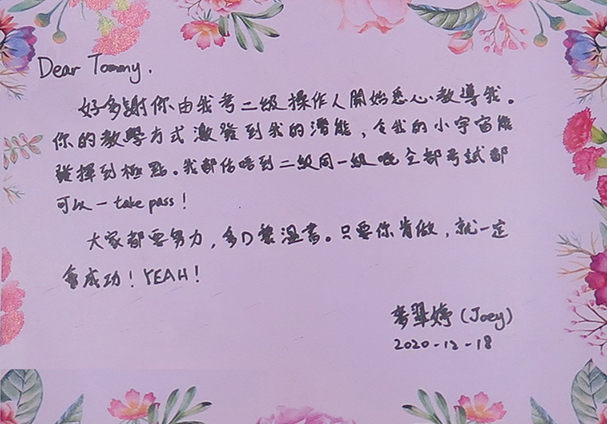 Dear Tommy.
好多謝你由我考二級操作人開始悉心教導我。
你的教學方式激發到我的潛能,令我的小宇宙能
發揮到極點。我都估唔到二級同一級嘅全部考試都
可以一 take pass!
大家都要努力,多D黎溫書。只要你肯做,就一定
會成功!YEAH!
麥翠婷 (Joey)
2020-12-18